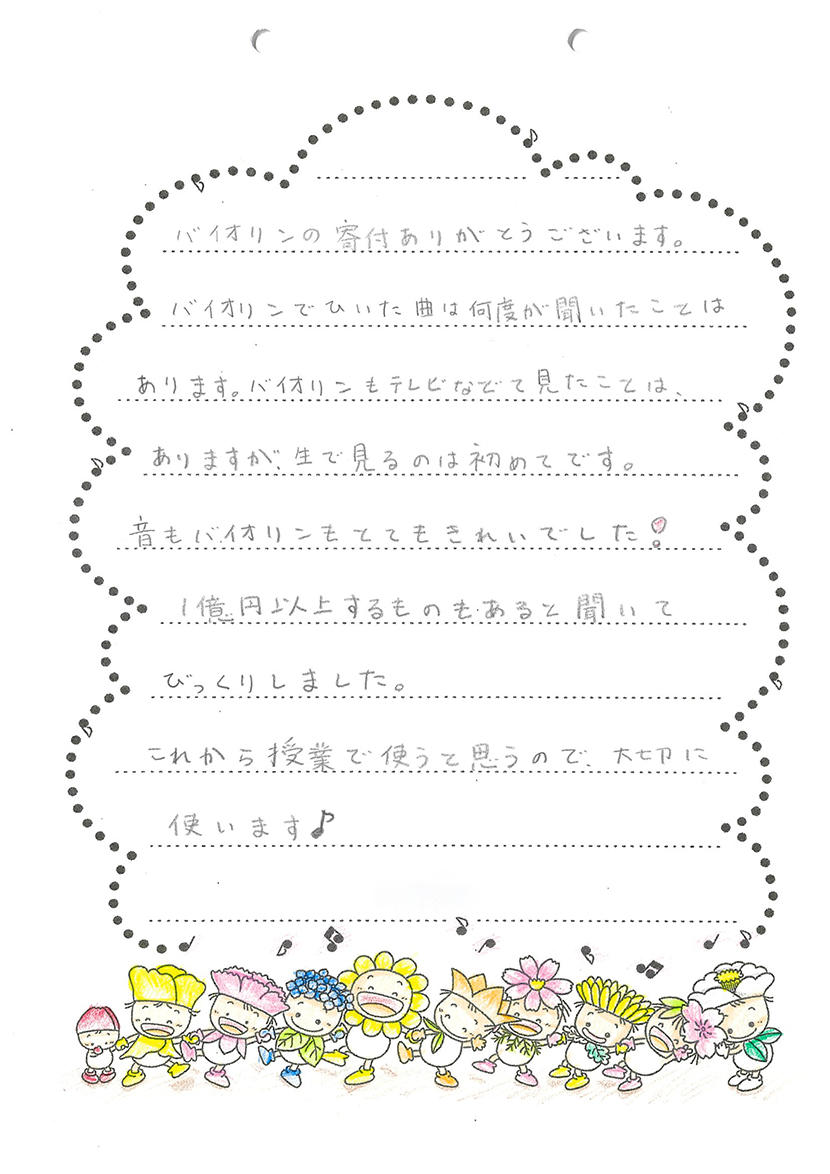 バイオリンの寄付ありがとうございます。
バイオリンでひいた曲は何度が聞いたことは
あります。バイオリンもテレビなどで見たことは、
ありますが、生で見るのは初めてです。
音もバイオリンもとてもきれいでした!
1億円以上するものもあると聞いて
びっくりしました。
これから授業で使うと思うので、大切に
使います♪